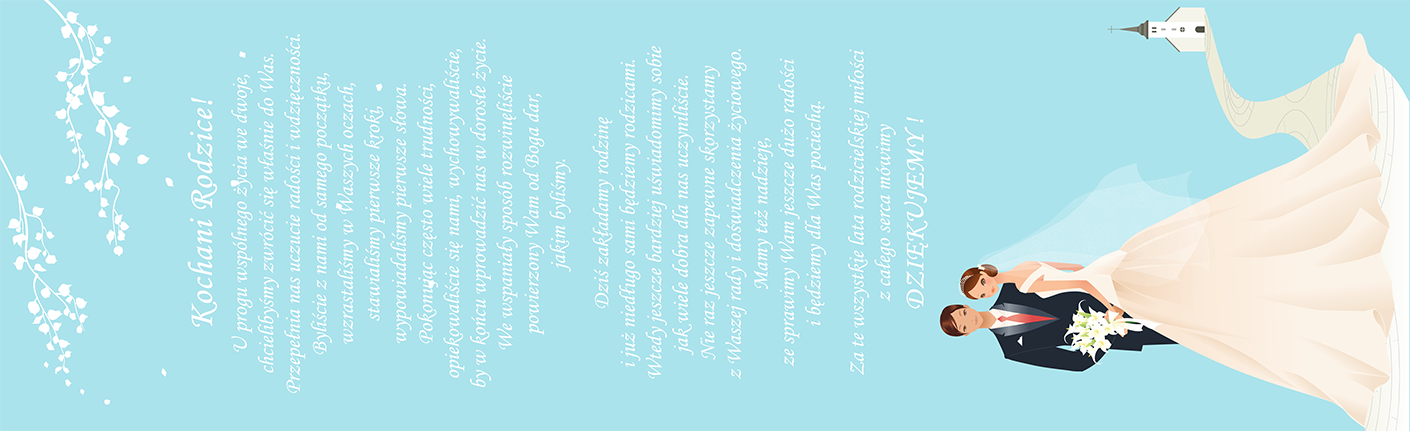 Kochani Rodzice!
U progu wspólnego życia we dwoje,
chcielibyśmy zwrócić się właśnie do Was.
Przepełnia nas uczucie radości i wdzięczności.
Byliście z nami od samego początku,
wzrastaliśmy w Waszych oczach,
stawialiśmy pierwsze kroki,
wypowiadaliśmy pierwsze słowa.
Pokonując często wiele trudności,
opiekowaliście się nami, wychowywaliście,
by w końcu wprowadzić nas w dorosłe życie.
We wspaniały sposób rozwinęliście
powierzony Wam od Boga dar,
jakim byliśmy.
Dziś zakładamy rodzinę
i już niedługo sami będziemy rodzicami.
Wtedy jeszcze bardziej uświadomimy sobie
jak wiele dobra dla nas uczyniliście.
Nie raz jeszcze zapewne skorzystamy
z Waszej rady i doświadczenia życiowego.
Mamy też nadzieję,
że sprawimy Wam jeszcze dużo radości
i będziemy dla Was pociechą.
Za te wszystkie lata rodzicielskiej miłości
z całego serca mówimy
DZIĘKUJEMY!